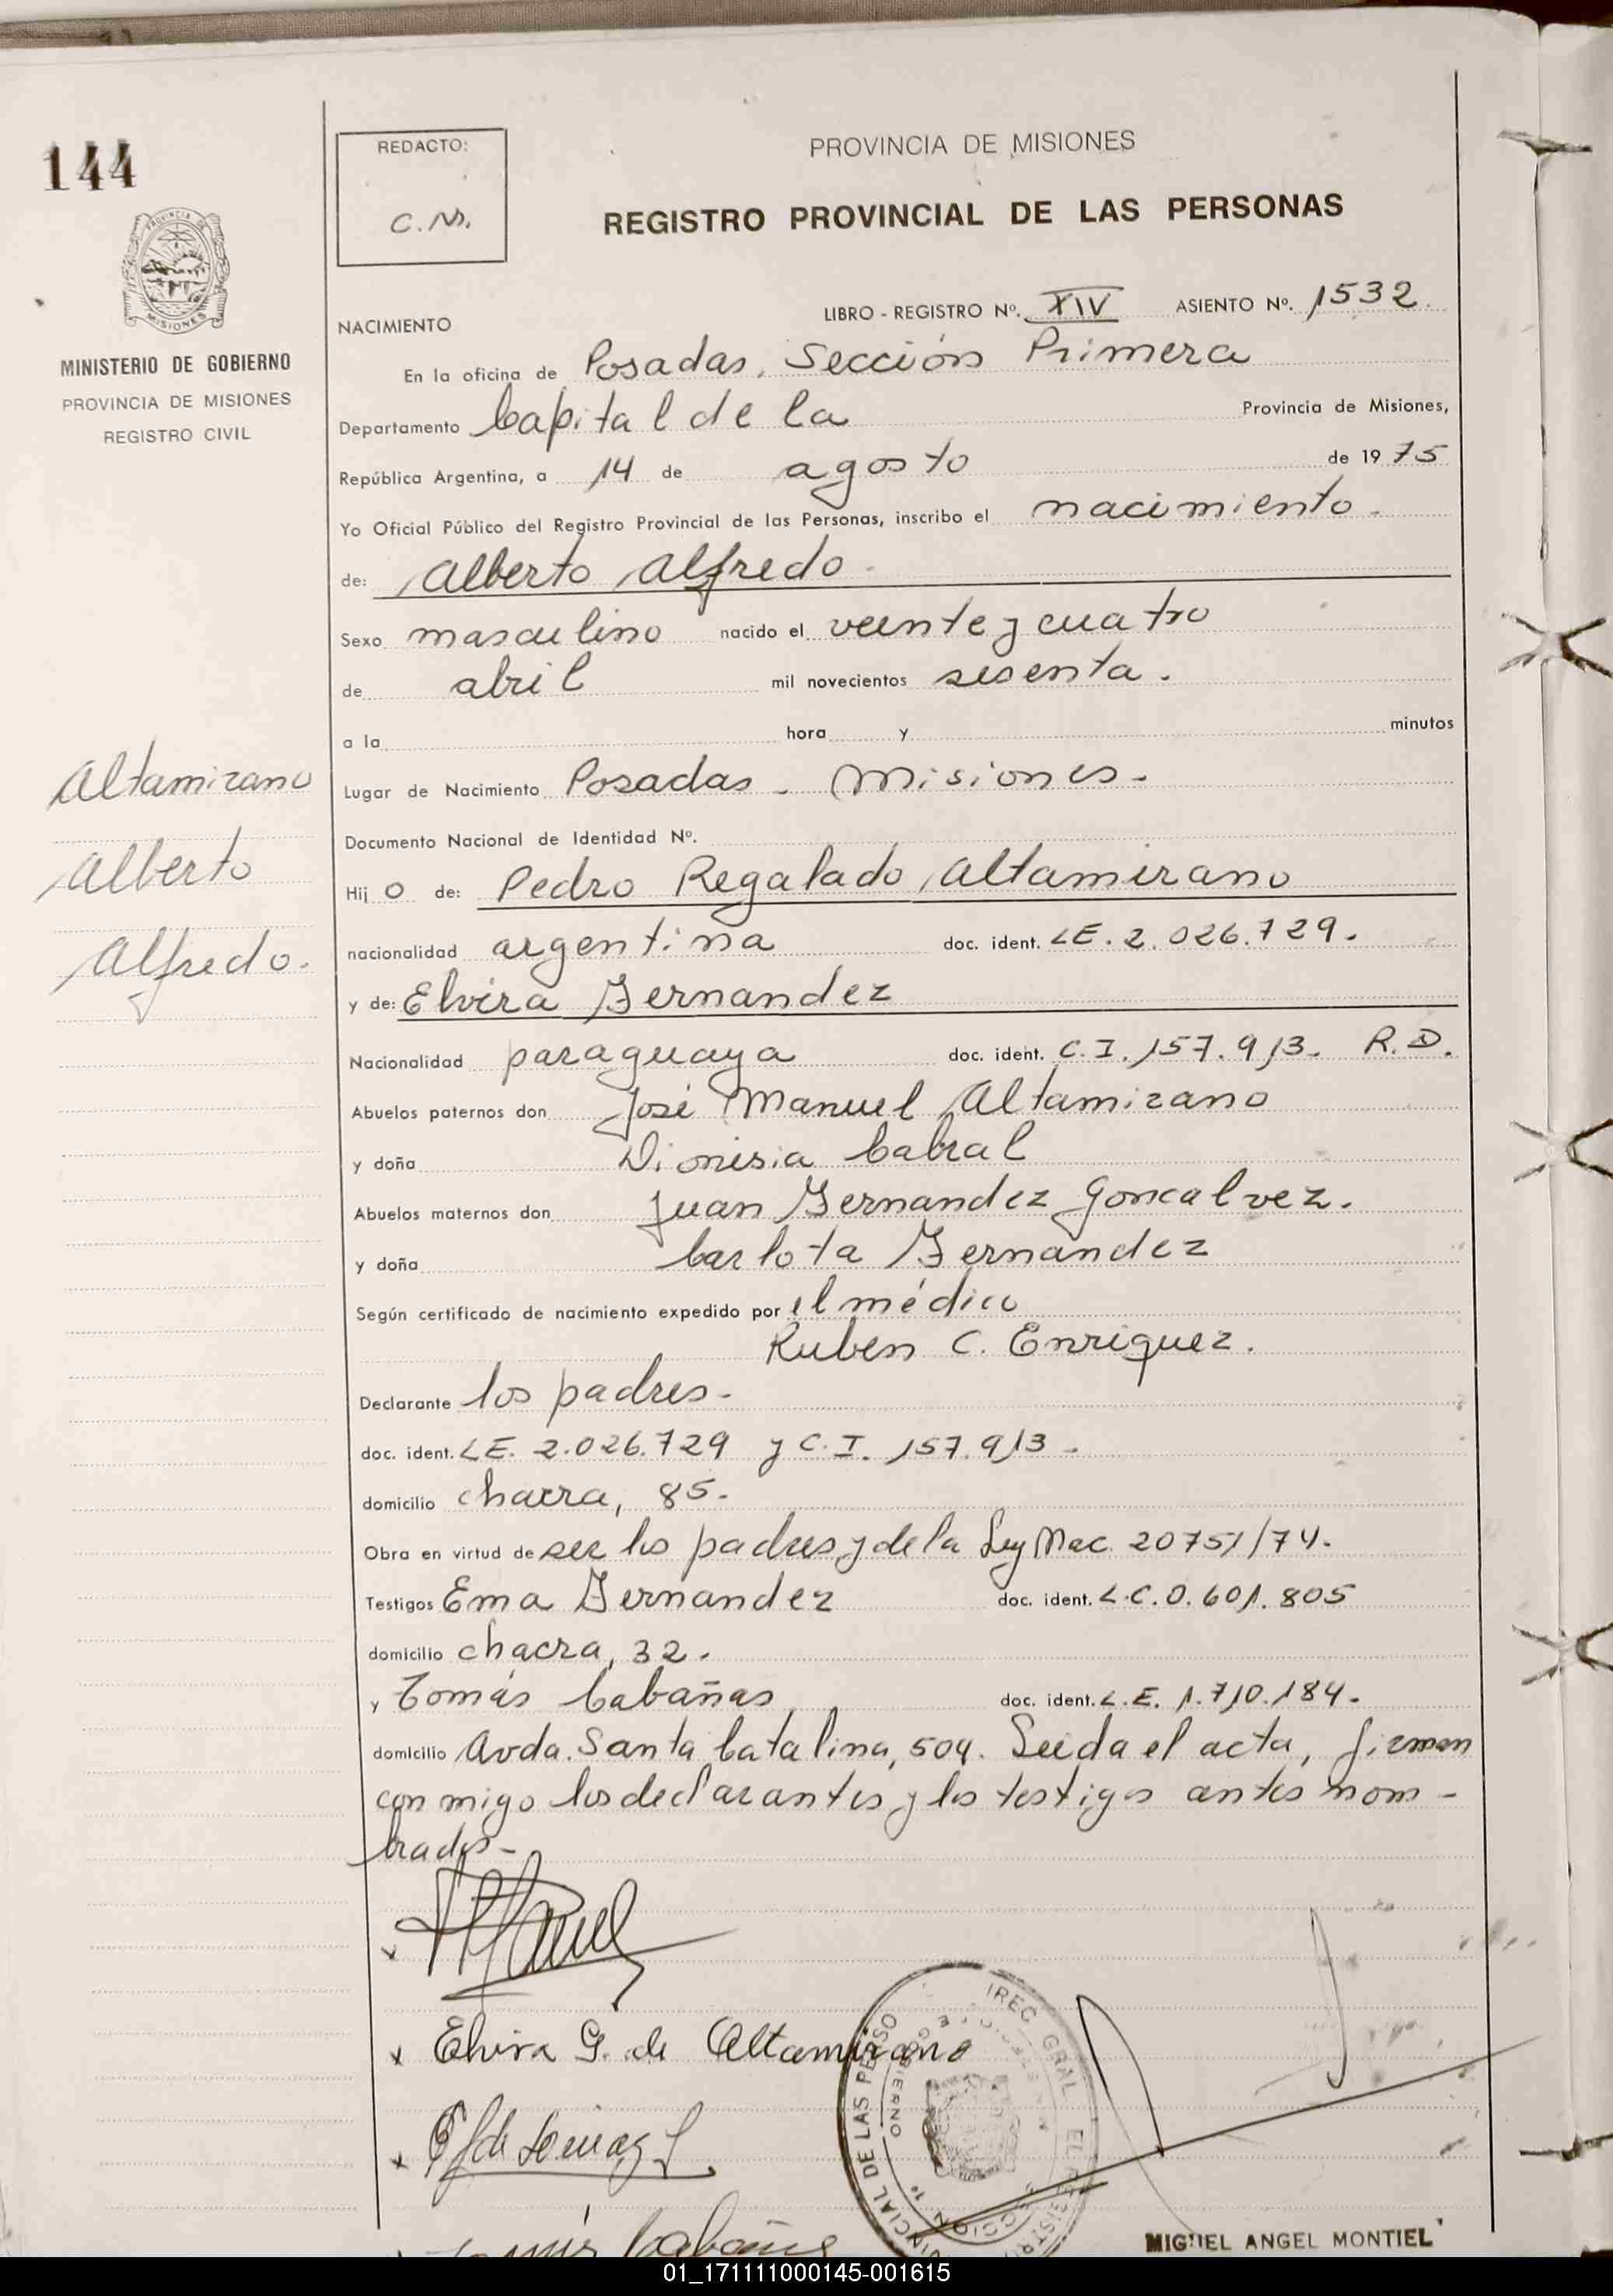 144
REDACTO:
C.N.
PROVINCIA DE MISIONES
REGISTRO PROVINCIAL DE LAS PERSONAS
MINISTERIO DE GOBIERNO
PROVINCIA DE MISIONES
REGISTRO CIVIL
LIBRO - REGISTRO Nº. XIV ASIENTO Nº. 1532.
NACIMIENTO
En la oficina de Posadas, Sección Primera
Departamento Capital de la Provincia de Misiones,
República Argentina, a 14 de agosto de 1975
Yo Oficial Público del Registro Provincial de las Personas, inscribo el nacimiento.
de: Alberto Alfredo.
Sexo masculino nacido el veinte y cuatro
de abril mil novecientos sesenta.
a la hora y minutos
Altamirano
Alberto
Alfredo.
Lugar de Nacimiento Posadas - Misiones.
Documento Nacional de Identidad Nº.
Hij o de: Pedro Regalado Altamirano
nacionalidad argentina doc. ident. LE. 2.026.729.
y de: Elvira Fernandez
Nacionalidad paraguaya doc. ident. C.I. 157.913. R.D.
Abuelos paternos don José Manuel Altamirano
y doña Dionisia Cabral
Abuelos maternos don Juan Fernandez Goncalvez.
y doña Carlota Fernandez
Según certificado de nacimiento expedido por el médico
Ruben C. Enriquez.
Declarante los padres.
doc. ident. LE. 2.026.729 y C.I. 157.913.
domicilio chacra, 85.
Obra en virtud de ser los padres y de la Ley Nac. 20751/74.
Testigos Ema Fernandez doc. ident. L.C. 0.601.805
domicilio chacra, 32.
y Tomás Cabañas doc. ident. L.E. 1.710.184.
domicilio Avda. Santa Catalina, 504. Leida el acta, firman
con migo los declarantes y los testigos antes nom-
brados-
Elvira G. de Altamirano
Tomás Cabañas
MIGUEL ANGEL MONTIEL
01_171111000145-001615